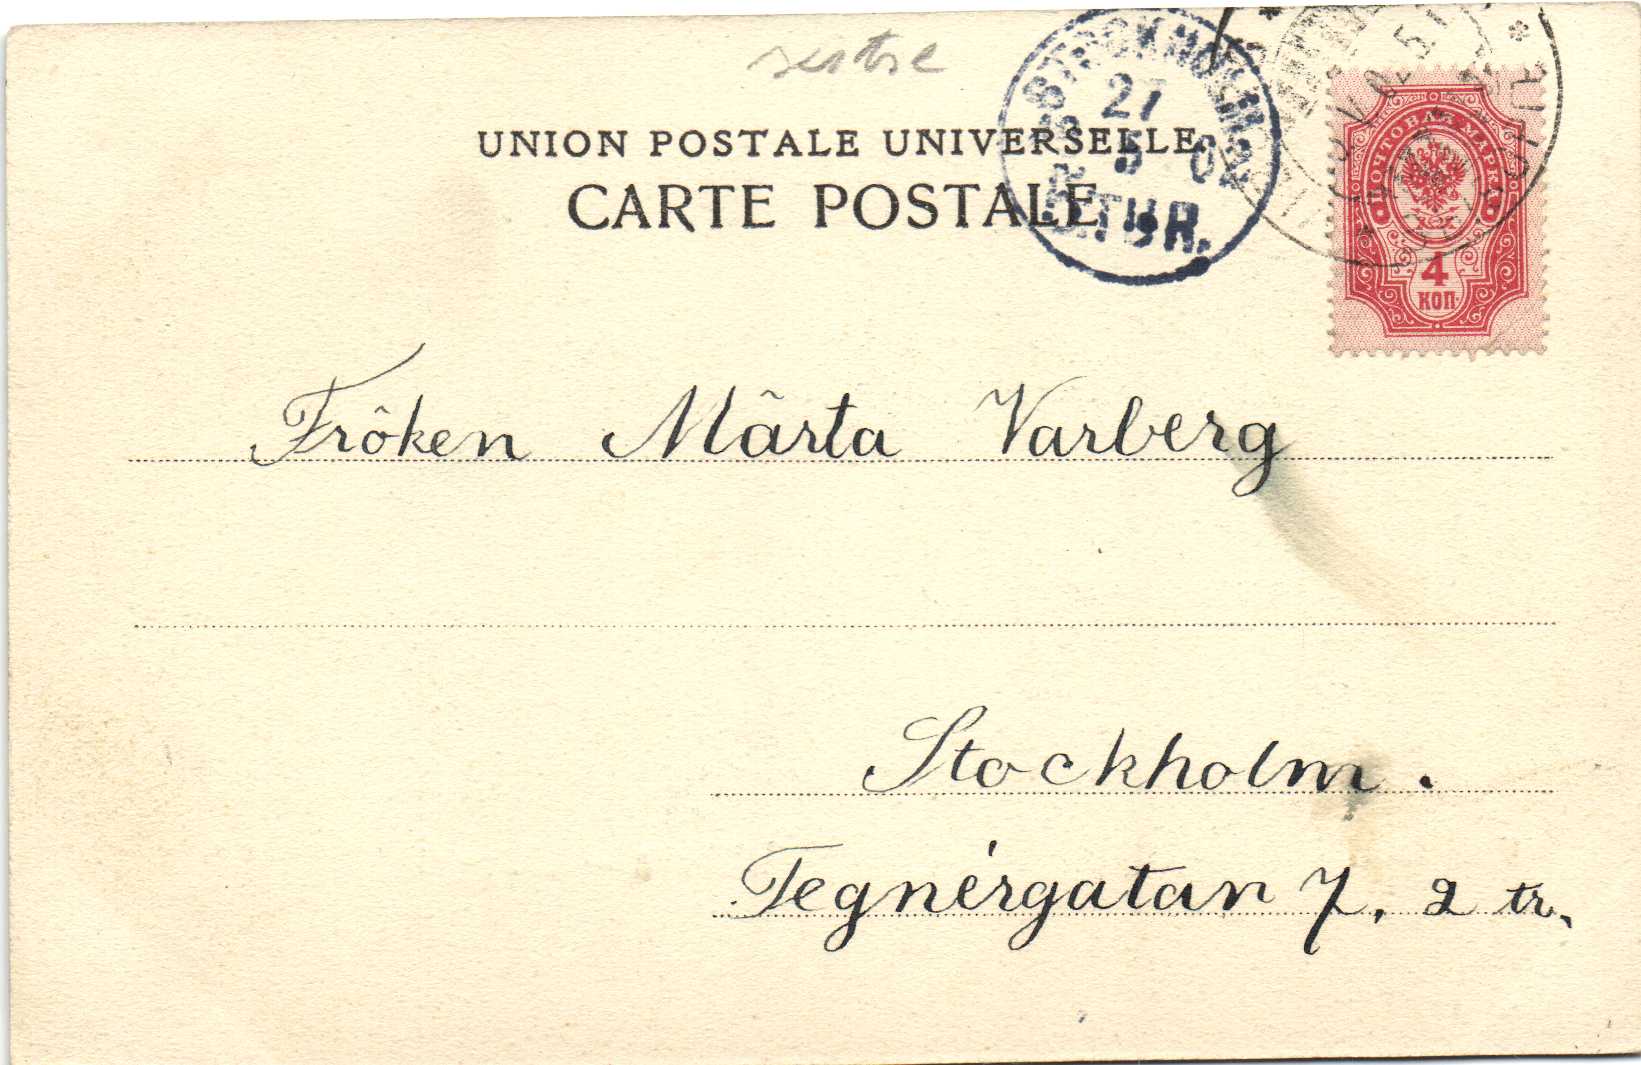 UNION POSTALE UNIVERSELLE
CARTE POSTALE
STOCKHOLM
27
5 02
1.TUR.
ПОЧТОВАЯ МАРКА
4
КОП.
Frôken Mârta Varberg
Stockholm.
Tegnérgatan 7, 2 tr.